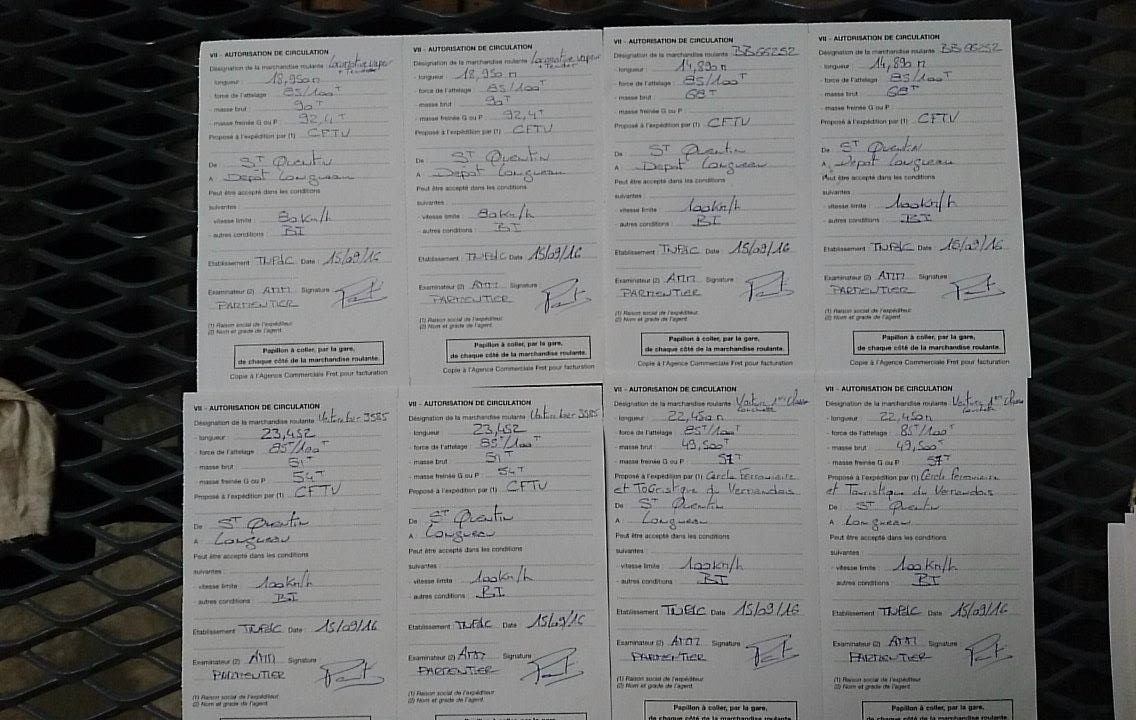 VII - AUTORISATION DE CIRCULATION
Désignation de la marchandise roulante Locomotive vapeur
+ Tender
- longueur : 18,950 m
- force de l'attelage : 85/100T
- masse brut : 90T
- masse freinée G ou P : 92,4T
Proposé à l'expédition par (1) CFTV
De ST Quentin
A Depot Longueau
Peut être accepté dans les conditions
suivantes :
- vitesse limite : 80 Km/h
- autres conditions : BI
Etablissement TNPdC Date : 15/09/16
Examinateur (2) Signature
PARMENTIER
(1) Raison social de l'expéditeur.
(2) Nom et grade de l'agent.
Papillon à coller, par la gare,
de chaque côté de la marchandise roulante.
Copie à l'Agence Commerciale Fret pour facturation
VII - AUTORISATION DE CIRCULATION
Désignation de la marchandise roulante Locomotive vapeur
+ Tender
- longueur : 18,950 m
- force de l'attelage : 85/100T
- masse brut : 90T
- masse freinée G ou P : 92,4T
Proposé à l'expédition par (1) CFTV
De ST Quentin
A Depot Longueau
Peut être accepté dans les conditions
suivantes :
- vitesse limite : 80 Km/h
- autres conditions : BI
Etablissement TNPdC Date : 15/09/16
Examinateur (2) Signature
PARMENTIER
(1) Raison social de l'expéditeur.
(2) Nom et grade de l'agent.
Papillon à coller, par la gare,
de chaque côté de la marchandise roulante.
Copie à l'Agence Commerciale Fret pour facturation
VII - AUTORISATION DE CIRCULATION
Désignation de la marchandise roulante BB 66252
- longueur : 14,890 m
- force de l'attelage : 85/100T
- masse brut : 68T
- masse freinée G ou P :
Proposé à l'expédition par (1) CFTV
De ST Quentin
A Depot Longueau
Peut être accepté dans les conditions
suivantes :
- vitesse limite : 100 Km/h
- autres conditions : BI
Etablissement TNPdC Date : 15/09/16
Examinateur (2) Signature
PARMENTIER
(1) Raison social de l'expéditeur.
(2) Nom et grade de l'agent.
Papillon à coller, par la gare,
de chaque côté de la marchandise roulante.
Copie à l'Agence Commerciale Fret pour facturation
VII - AUTORISATION DE CIRCULATION
Désignation de la marchandise roulante BB 66252
- longueur : 14,890 m
- force de l'attelage : 85/100T
- masse brut : 68T
- masse freinée G ou P :
Proposé à l'expédition par (1) CFTV
De ST Quentin
A Depot Longueau
Peut être accepté dans les conditions
suivantes :
- vitesse limite : 100 Km/h
- autres conditions : BI
Etablissement TNPdC Date : 15/09/16
Examinateur (2) Signature
PARMENTIER
(1) Raison social de l'expéditeur.
(2) Nom et grade de l'agent.
Papillon à coller, par la gare,
de chaque côté de la marchandise roulante.
Copie à l'Agence Commerciale Fret pour facturation
VII - AUTORISATION DE CIRCULATION
Désignation de la marchandise roulante 3585
- longueur : 23,452
- force de l'attelage : 85T/100T
- masse brut : 51T
- masse freinée G ou P : 54T
Proposé à l'expédition par (1) CFTV
De ST Quentin
A Longueau
Peut être accepté dans les conditions
suivantes :
- vitesse limite : 100 Km/h
- autres conditions : BI
Etablissement TNPdC Date : 15/09/16
Examinateur (2) Signature
PARMENTIER
(1) Raison social de l'expéditeur.
(2) Nom et grade de l'agent.
VII - AUTORISATION DE CIRCULATION
Désignation de la marchandise roulante 3585
- longueur : 23,452
- force de l'attelage : 85T/100T
- masse brut : 51T
- masse freinée G ou P : 54T
Proposé à l'expédition par (1) CFTV
De ST Quentin
A Longueau
Peut être accepté dans les conditions
suivantes :
- vitesse limite : 100 Km/h
- autres conditions : BI
Etablissement TNPdC Date : 15/09/16
Examinateur (2) Signature
PARMENTIER
(1) Raison social de l'expéditeur.
(2) Nom et grade de l'agent.
VII - AUTORISATION DE CIRCULATION
Désignation de la marchandise roulante Voiture 1ère Classe
Couchette
- longueur : 22,450 m
- force de l'attelage : 85T/100T
- masse brut : 49,500T
- masse freinée G ou P : 57T
Proposé à l'expédition par (1) Cercle Ferroviaire
et Touristique du Vermandois
De ST Quentin
A Longueau
Peut être accepté dans les conditions
suivantes :
- vitesse limite : 100 Km/h
- autres conditions : BI
Etablissement TNPdC Date : 15/09/16
Examinateur (2) Signature
PARMENTIER
(1) Raison social de l'expéditeur.
(2) Nom et grade de l'agent.
Papillon à coller, par la gare,
de chaque côté de la marchandise roulante.
VII - AUTORISATION DE CIRCULATION
Désignation de la marchandise roulante Voiture 1ère Classe
Couchette
- longueur : 22,450 m
- force de l'attelage : 85T/100T
- masse brut : 49,500
- masse freinée G ou P : 57T
Proposé à l'expédition par (1) Cercle Ferroviaire
et Touristique du Vermandois
De ST Quentin
A Longueau
Peut être accepté dans les conditions
suivantes :
- vitesse limite : 100 Km/h
- autres conditions : BI
Etablissement TNPdC Date : 15/09/16
Examinateur (2) Signature
PARMENTIER
(1) Raison social de l'expéditeur.
(2) Nom et grade de l'agent.
Papillon à coller, par la gare,
de chaque côté de la marchandise roulante.